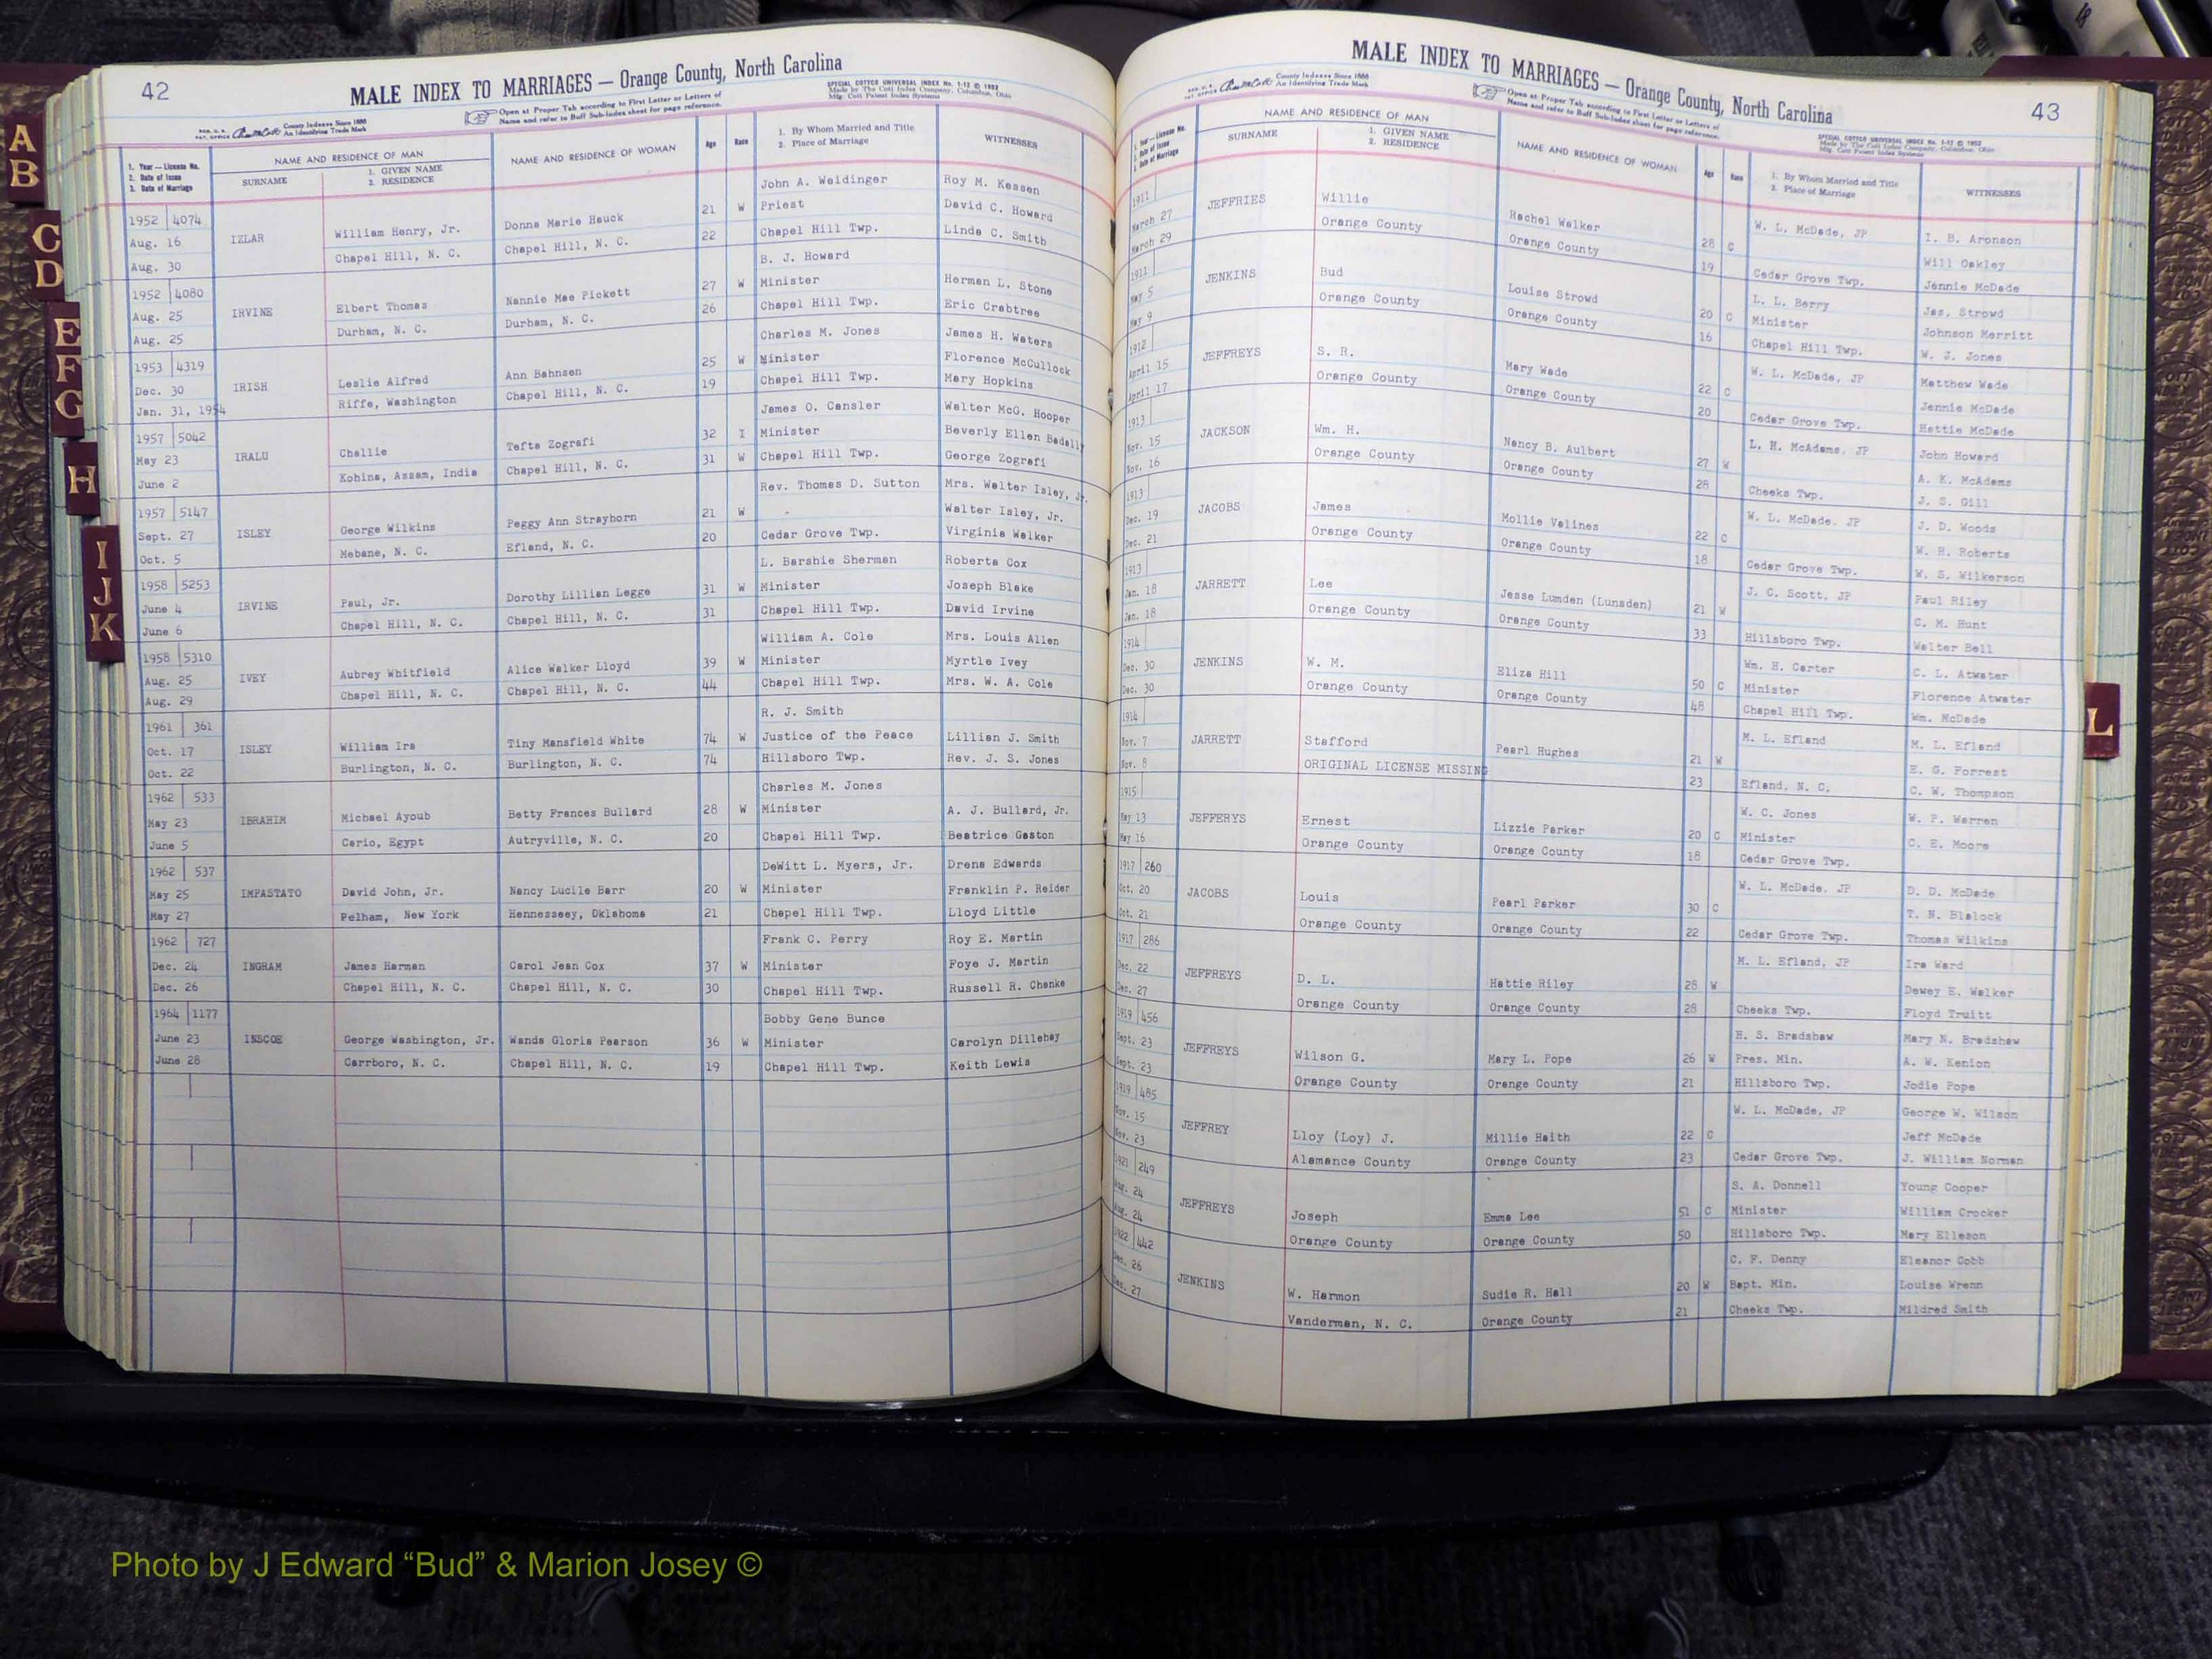 42
MALE INDEX TO MARRIAGES — Orange County, North Carolina
County Indexes Since 1888
An Identifying Trade Mark
Open at Proper Tab according to First Letter or Letters of
Name and refer to Buff Sub-Index sheet for page reference.
SPECIAL COTTCO UNIVERSAL INDEX No. 1-12 © 1952
Made by The Cott Index Company, Columbus, Ohio
Mfg. Cott Patent Index Systems
1. Year — License No.
2. Date of Issue
3. Date of Marriage
NAME AND RESIDENCE OF MAN
SURNAME
1. GIVEN NAME
2. RESIDENCE
NAME AND RESIDENCE OF WOMAN
Age
Race
1. By Whom Married and Title
2. Place of Marriage
WITNESSES
John A. Weidinger Roy M. Kessen
1952 4074 Donna Marie Hauck 21 W Priest David C. Howard
Aug. 16 IZLAR William Henry, Jr. Chapel Hill, N. C. 22 Chapel Hill Twp. Linda C. Smith
Aug. 30 Chapel Hill, N. C.
B. J. Howard
1952 4080 Nannie Mae Pickett 27 W Minister Herman L. Stone
Aug. 25 IRVINE Elbert Thomas Durham, N. C. 26 Chapel Hill Twp. Eric Crabtree
Aug. 25 Durham, N. C.
Charles M. Jones James H. Waters
1953 4319 Ann Bahnsen 25 W Minister Florence McCullock
Dec. 30 IRISH Leslie Alfred Chapel Hill, N. C. 19 Chapel Hill Twp. Mary Hopkins
Jan. 31, 1954 Riffe, Washington
James O. Cansler Walter McG. Hooper
1957 5042 Tefta Zografi 32 I Minister Beverly Ellen Badally
May 23 IRALU Challie Chapel Hill, N. C. 31 W Chapel Hill Twp. George Zografi
June 2 Kohina, Assam, India
Rev. Thomas D. Sutton Mrs. Walter Isley, Jr.
1957 5147 Peggy Ann Strayhorn 21 W Walter Isley, Jr.
Sept. 27 ISLEY George Wilkins Efland, N. C. 20 Cedar Grove Twp. Virginia Walker
Oct. 5 Mebane, N. C.
L. Barshie Sherman Roberta Cox
1958 5253 Dorothy Lillian Legge 31 W Minister Joseph Blake
June 4 IRVINE Paul, Jr. Chapel Hill, N. C. 31 Chapel Hill Twp. David Irvine
June 6 Chapel Hill, N. C.
William A. Cole Mrs. Louis Allen
1958 5310 Alice Walker Lloyd 39 W Minister Myrtle Ivey
Aug. 25 IVEY Aubrey Whitfield Chapel Hill, N. C. 44 Chapel Hill Twp. Mrs. W. A. Cole
Aug. 29 Chapel Hill, N. C.
R. J. Smith
1961 361 Tiny Mansfield White 74 W Justice of the Peace Lillian J. Smith
Oct. 17 ISLEY William Ira Burlington, N. C. 74 Hillsboro Twp. Rev. J. S. Jones
Oct. 22 Burlington, N. C.
Charles M. Jones
1962 533 Betty Frances Bullard 28 W Minister A. J. Bullard, Jr.
May 23 IBRAHIM Michael Ayoub Autryville, N. C. 20 Chapel Hill Twp. Beatrice Gaston
June 5 Cario, Egypt
DeWitt L. Myers, Jr. Drena Edwards
1962 537 Nancy Lucile Barr 20 W Minister Franklin P. Reider
May 25 IMPASTATO David John, Jr. Hennessey, Oklahoma 21 Chapel Hill Twp. Lloyd Little
May 27 Pelham, New York
Frank C. Perry Roy E. Martin
1962 727 Carol Jean Cox 37 W Minister Foye J. Martin
Dec. 24 INGRAM James Harman Chapel Hill, N. C. 30 Chapel Hill Twp. Russell R. Chanke
Dec. 26 Chapel Hill, N. C.
Bobby Gene Bunce
1964 1177 Wanda Gloria Pearson 36 W Minister Carolyn Dillehay
June 23 INSCOE George Washington, Jr. Chapel Hill, N. C. 19 Chapel Hill Twp. Keith Lewis
June 28 Carrboro, N. C.
MALE INDEX TO MARRIAGES — Orange County, North Carolina
43
County Indexes Since 1888
An Identifying Trade Mark
Open at Proper Tab according to First Letter or Letters of
Name and refer to Buff Sub-Index sheet for page reference.
SPECIAL COTTCO UNIVERSAL INDEX No. 1-12 © 1952
Made by The Cott Index Company, Columbus, Ohio
Mfg. Cott Patent Index Systems
1. Year — License No.
2. Date of Issue
3. Date of Marriage
NAME AND RESIDENCE OF MAN
SURNAME
1. GIVEN NAME
2. RESIDENCE
NAME AND RESIDENCE OF WOMAN
Age
Race
1. By Whom Married and Title
2. Place of Marriage
WITNESSES
1911 JEFFRIES Willie Rachel Walker 28 C W. L. McDade, JP I. B. Aronson
March 27 Orange County Orange County 19 Will Oakley
March 29 Cedar Grove Twp. Jennie McDade
1911 JENKINS Bud Louise Strowd 20 C L. L. Berry Jas. Strowd
May 5 Orange County Orange County 16 Minister Johnson Merritt
May 9 Chapel Hill Twp. W. J. Jones
1912 JEFFREYS S. R. Mary Wade 22 C W. L. McDade, JP Matthew Wade
April 15 Orange County Orange County 20 Jennie McDade
April 17 Cedar Grove Twp. Hettie McDade
1913 JACKSON Wm. H. Nancy B. Aulbert 27 W L. H. McAdams, JP John Howard
Nov. 15 Orange County Orange County 28 A. K. McAdams
Nov. 16 Cheeks Twp. J. S. Gill
1913 JACOBS James Mollie Valines 22 C W. L. McDade, JP J. D. Woods
Dec. 19 Orange County Orange County 18 W. H. Roberts
Dec. 21 Cedar Grove Twp. W. S. Wilkerson
1913 JARRETT Lee Jesse Lumden (Lunsden) 21 W J. C. Scott, JP Paul Riley
Jan. 18 Orange County Orange County 33 C. M. Hunt
Jan. 18 Hillsboro Twp. Walter Bell
1914 JENKINS W. M. Eliza Hill 50 C Wm. H. Carter C. L. Atwater
Dec. 30 Orange County Orange County 48 Minister Florence Atwater
Dec. 30 Chapel Hill Twp. Wm. McDade
1914 JARRETT Stafford Pearl Hughes 21 W M. L. Efland M. L. Efland
Nov. 7 ORIGINAL LICENSE MISSING 23 E. G. Forrest
Nov. 8 Efland, N. C. C. W. Thompson
1915 JEFFERYS Ernest Lizzie Parker 20 C W. C. Jones W. P. Warren
May 13 Orange County Orange County 18 Minister C. E. Moore
May 16 Cedar Grove Twp.
1917 260 JACOBS Louis Pearl Parker 30 C W. L. McDade, JP D. D. McDade
Oct. 20 Orange County Orange County 22 T. N. Blalock
Oct. 21 Cedar Grove Twp. Thomas Wilkins
1917 286 JEFFREYS D. L. Hattie Riley 28 W M. L. Efland, JP Ira Ward
Dec. 22 Orange County Orange County 28 Dewey E. Walker
Dec. 27 Cheeks Twp. Floyd Truitt
1919 456 JEFFREYS Wilson G. Mary L. Pope 26 W H. S. Bradshaw Mary N. Bradshaw
Sept. 23 Orange County Orange County 21 Pres. Min. A. W. Kenion
Sept. 23 Hillsboro Twp. Jodie Pope
1919 485 JEFFREY Lloy (Loy) J. Millie Haith 22 C W. L. McDade, JP George W. Wilson
Nov. 15 Alamance County Orange County 23 Jeff McDade
Nov. 23 Cedar Grove Twp. J. William Norman
1921 249 JEFFREYS Joseph Emma Lee 51 C S. A. Donnell Young Cooper
Aug. 24 Orange County Orange County 50 Minister William Crocker
Aug. 24 Hillsboro Twp. Mary Elleson
1922 442 JENKINS W. Harmon Sudie R. Hall 20 W C. F. Denny Eleanor Cobb
Dec. 26 Vanderman, N. C. Orange County 21 Bapt. Min. Louise Wrenn
Dec. 27 Cheeks Twp. Mildred Smith
A
B
C
D
E
F
G
H
I
J
K
L
Photo by J Edward “Bud” & Marion Josey ©